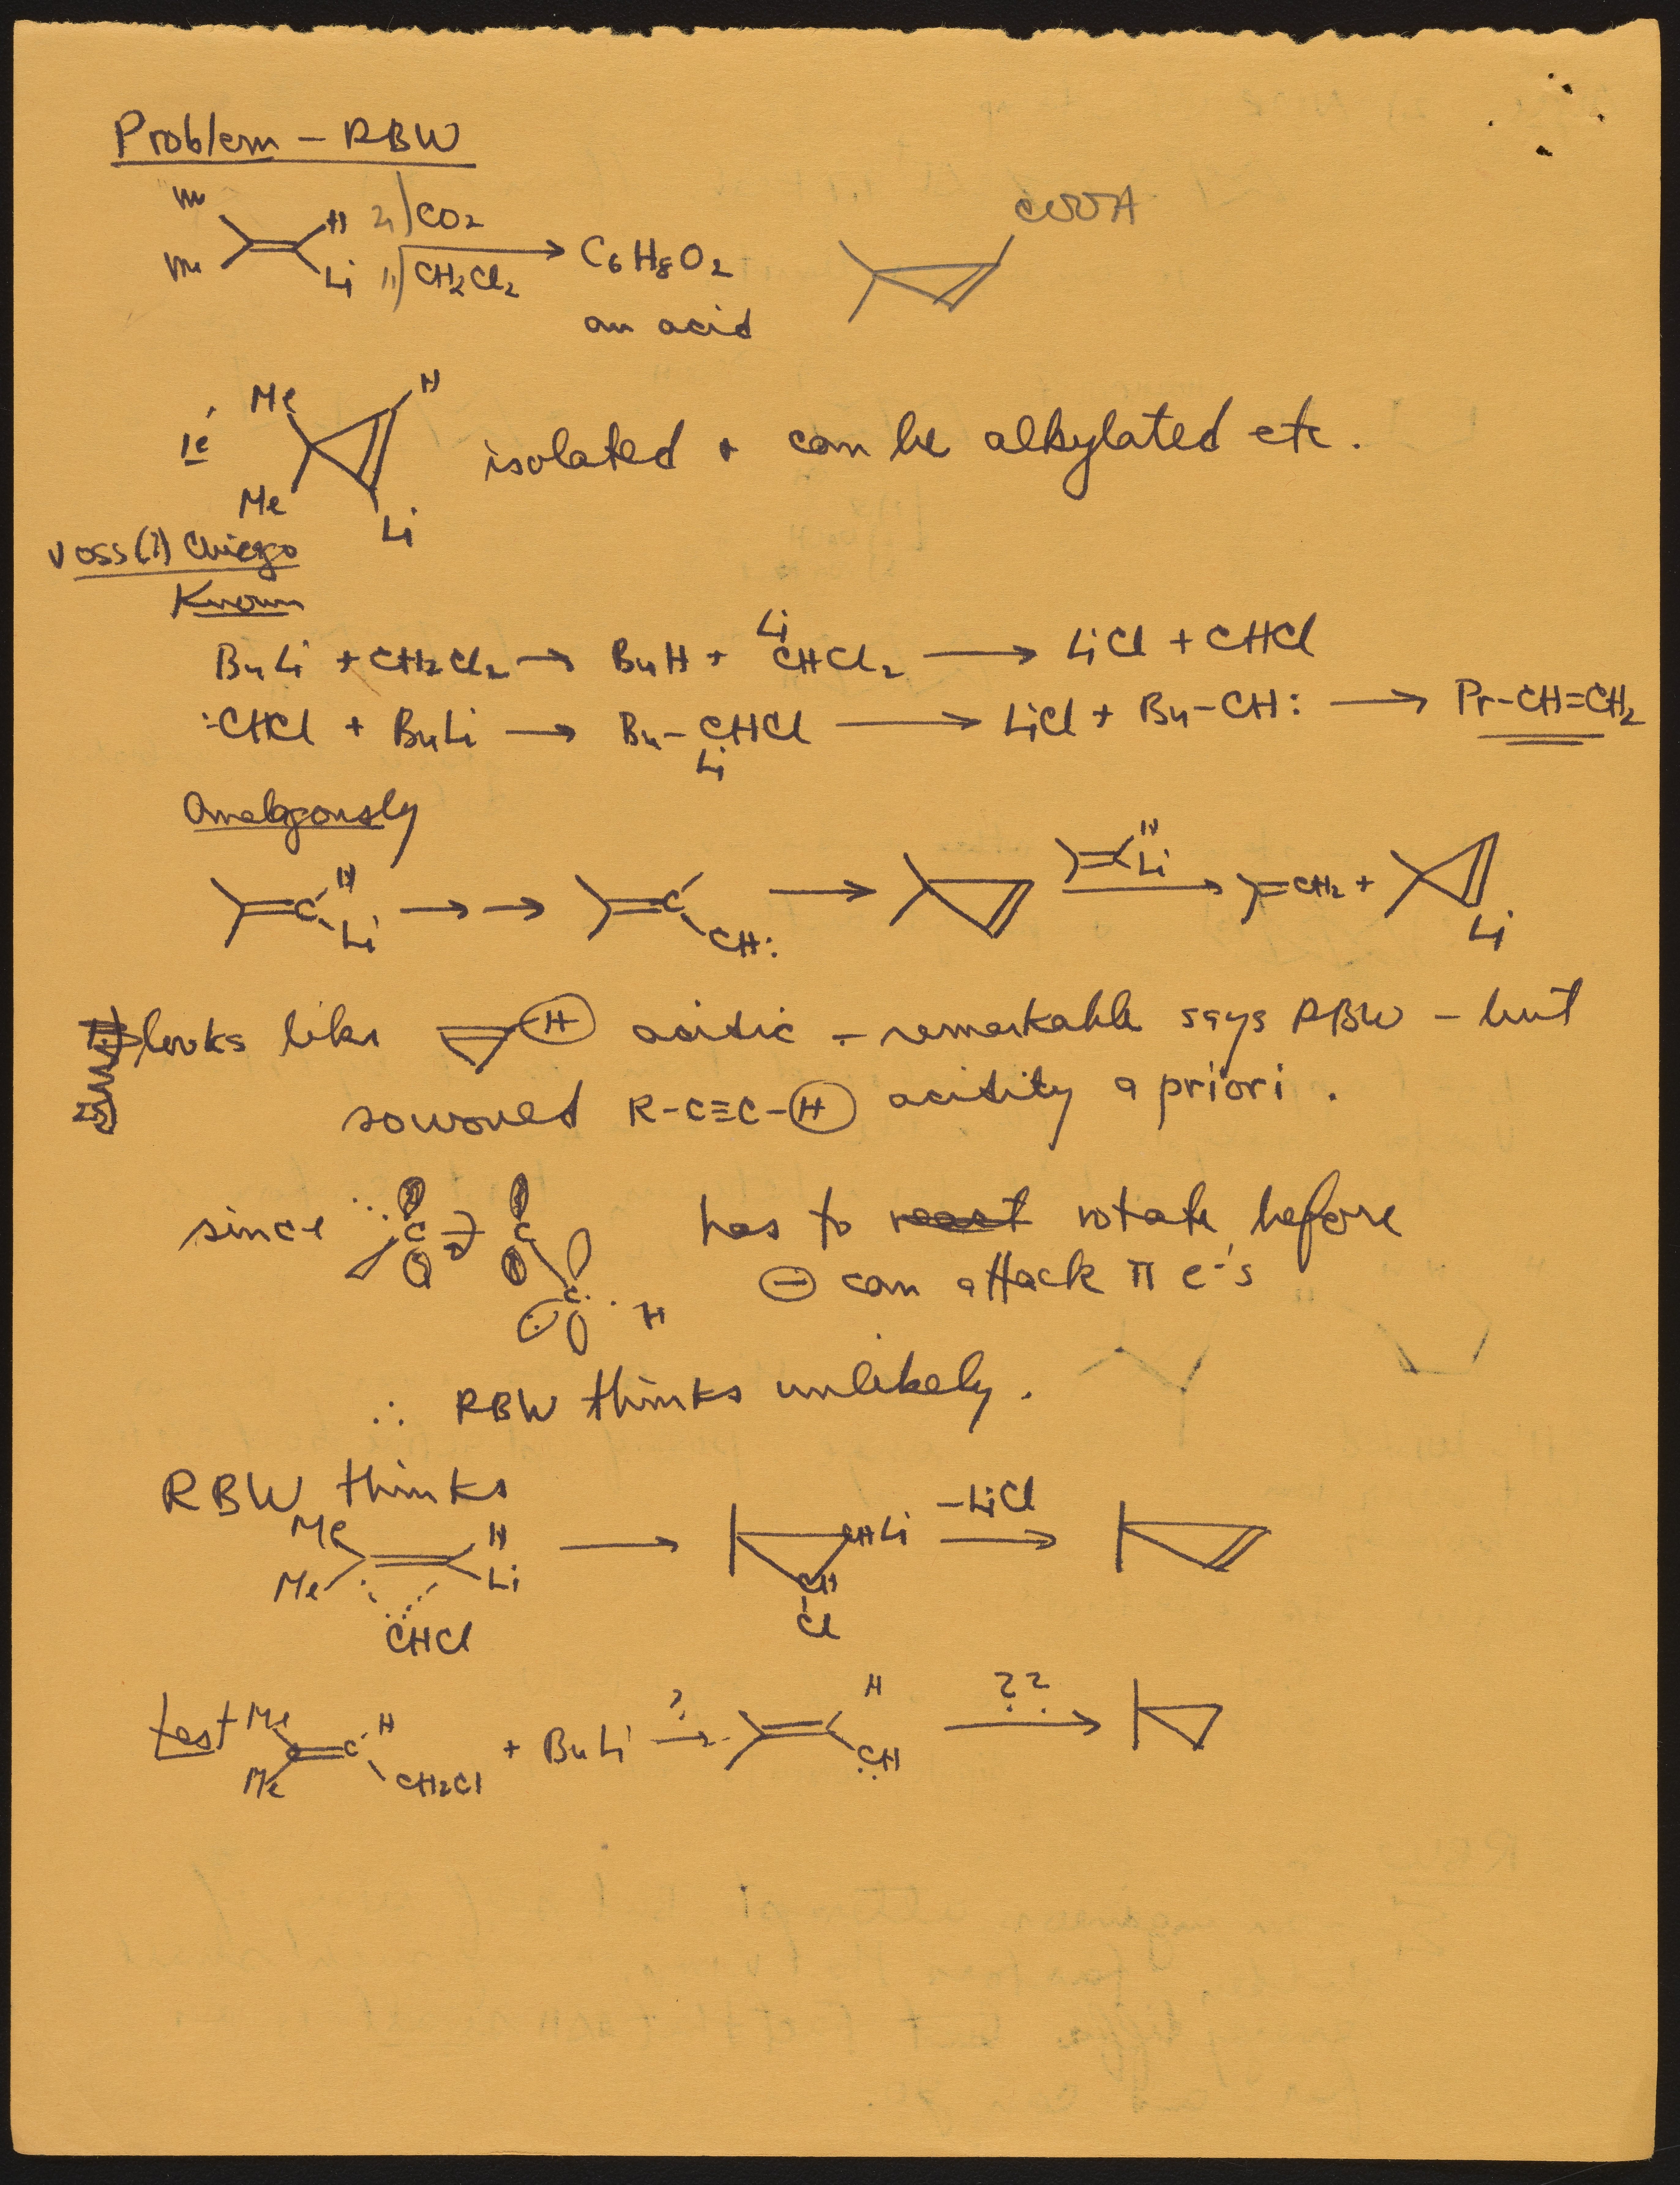 Problem – RBW
Me
Me
H
Li
2) CO2
1) CH2Cl2
C6H8O2
an acid
COOH
ie
Me
Me
H
Li
isolated + can be alkylated etc.
Voss(?) Chicago
Known
BuLi + CH2Cl2 → BuH + LiCHCl2 → LiCl + CHCl
:CHCl + BuLi → Bu–CHCl → LiCl + Bu–CH: → Pr–CH=CH2
Li
Analogously
H
C
Li
→ →
C
CH:
→
H
Li
→
=CH2 +
Li
looks like H acidic – remarkable says RBW – but
R–C≡C–H acidity a priori.
since C C C H has to react rotate before
⊖ can attack π e-'s
∴ RBW thinks unlikely.
RBW thinks
Me
Me
H
Li
CHCl
→
CHLi
CH
Cl
–LiCl
→
test Me
Me
C
H
CH2Cl
+ BuLi
?
→
H
CH
??
→